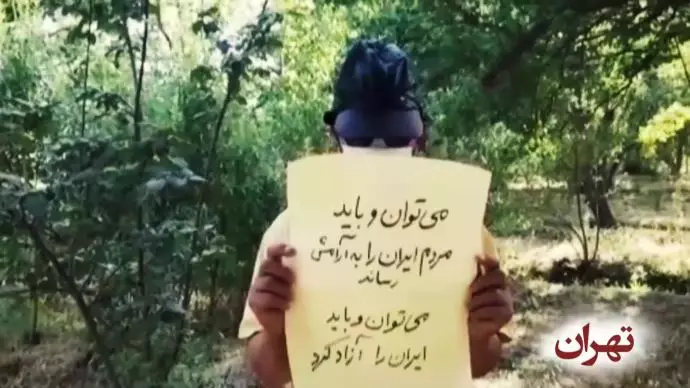 می‌توان و باید
مردم ایران را به آرامش
رساند
می‌توان و باید
ایران را آزاد کرد
تهران